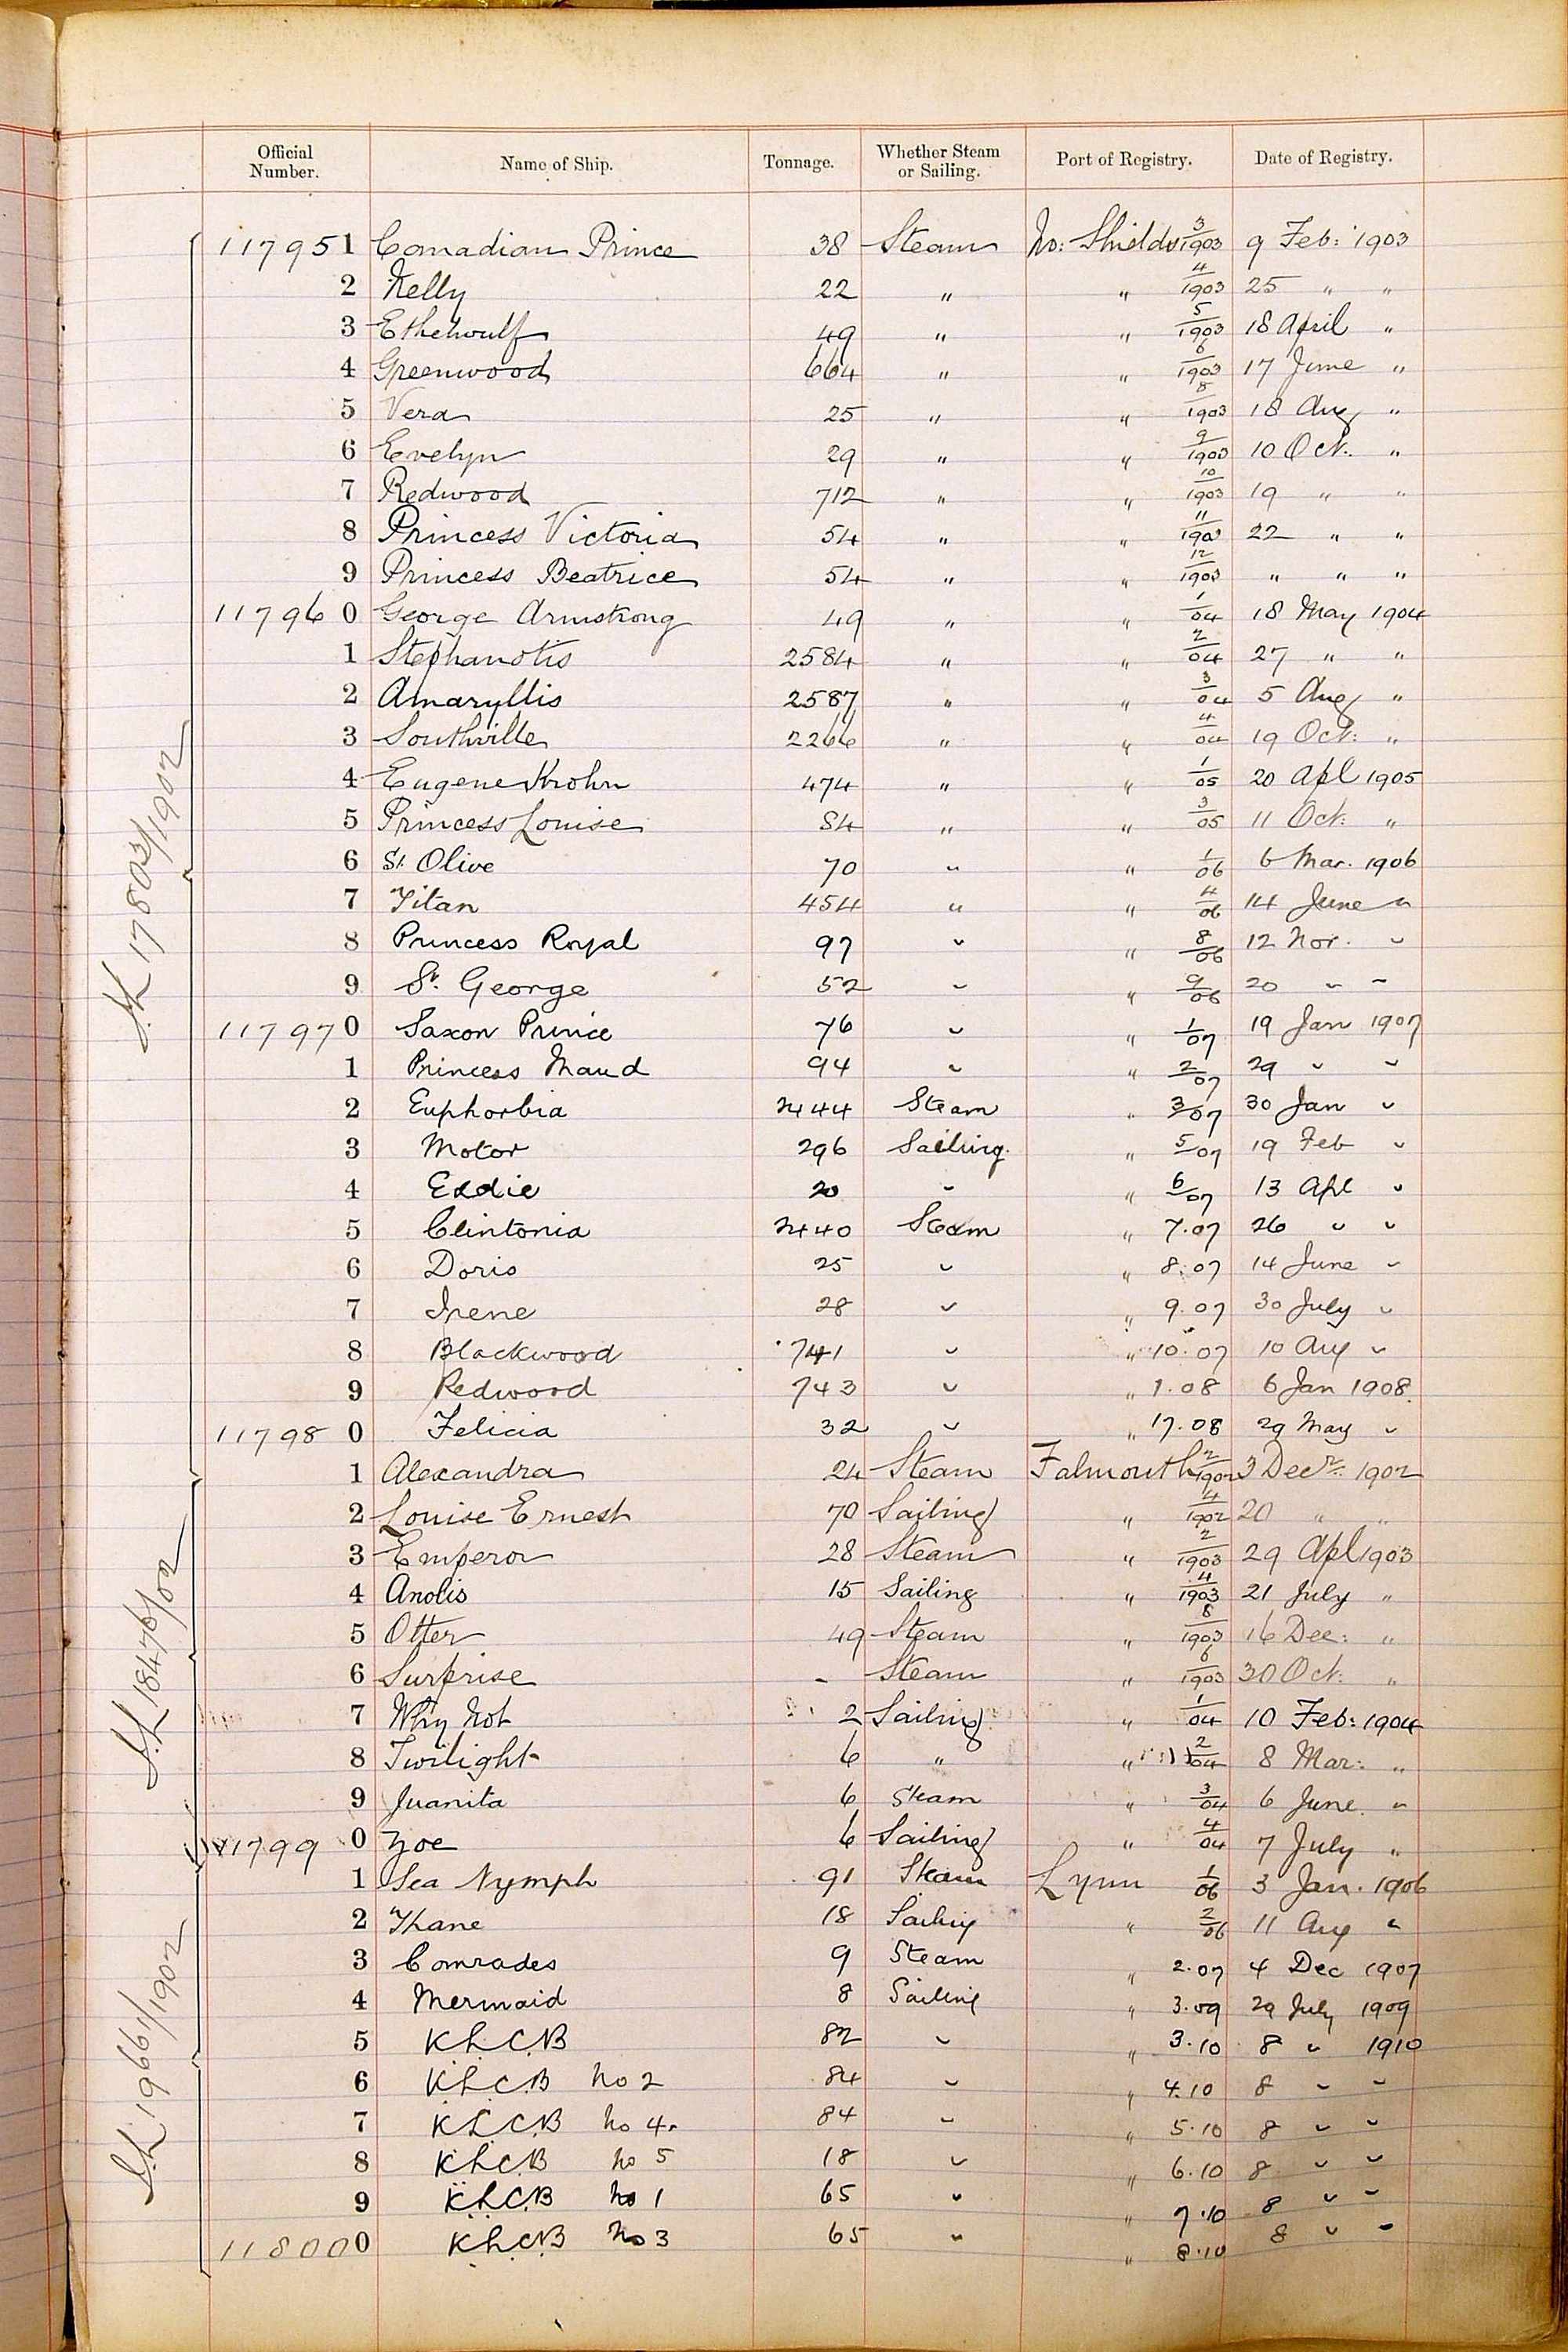 Official Number. Name of Ship. Tonnage. Whether Steam or Sailing. Port of Registry. Date of Registry.
117951 Canadian Prince 38 Steam No: Shields 3/1903 9 Feb: 1903
2 Nelly 22 " " 4/1903 25 " "
3 Ethelwulf 49 " " 5/1903 18 April "
4 Greenwood 664 " " 6/1903 17 June "
5 Vera 25 " " 8/1903 18 Aug "
6 Evelyn 29 " " 9/1903 10 Oct. "
7 Redwood 712 " " 10/1903 19 " "
8 Princess Victoria 54 " " 11/1903 22 " "
9 Princess Beatrice 54 " " 12/1903 " " "
117960 George Armstrong 49 " " 1/04 18 May 1904
1 Stephanotis 2584 " " 2/04 27 " "
2 Amaryllis 2587 " " 3/04 5 Aug "
3 Southville 2266 " " 4/04 19 Oct: "
4 Eugene Krohn 474 " " 1/05 20 Apl 1905
5 Princess Louise 84 " " 3/05 11 Oct: "
6 St. Olive 70 " " 1/06 6 Mar. 1906
7 Titan 454 " " 4/06 14 June "
8 Princess Royal 97 " " 8/06 12 Nov. "
9 St. George 52 " " 9/06 20 " "
117970 Saxon Prince 76 " " 1/07 19 Jan 1907
1 Princess Maud 94 " " 2/07 29 " "
2 Euphorbia 2444 Steam " 3/07 30 Jan "
3 Motor 296 Sailing. " 5/07 19 Feb "
4 Eddie 20 " " 6/07 13 Apl "
5 Clintonia 2440 Steam " 7.07 26 " "
6 Doris 25 " " 8.07 14 June "
7 Irene 28 " " 9.07 30 July "
8 Blackwood 741 " " 10.07 10 Aug "
9 Redwood 743 " " 1.08 6 Jan 1908.
117980 Felicia 32 " " 17.08 29 May "
1 Alexandra 24 Steam Falmouth 2/1902 3 Decr. 1902
2 Louise Ernest 70 Sailing " 4/1902 20 " "
3 Emperor 28 Steam " 2/1903 29 Apl 1903
4 Anolis 15 Sailing " 4/1903 21 July "
5 Otter 49 Steam " 8/1903 16 Dec: "
6 Surprise - Steam " 6/1903 30 Oct: "
7 Why Not 2 Sailing " 1/04 10 Feb: 1904
8 Twilight 6 " " 2/04 8 Mar: "
9 Juanita 6 Steam " 3/04 6 June. "
117990 Zoe 6 Sailing " 4/04 7 July "
1 Sea Nymph 91 Steam Lynn 1/06 3 Jan. 1906
2 Thane 18 Sailing " 2/06 11 Aug "
3 Comrades 9 Steam " 2.07 4 Dec 1907
4 Mermaid 8 Sailing " 3.09 29 July 1909
5 K.L.C.B 82 " " 3.10 8 " 1910
6 K.L.C.B No 2 84 " " 4.10 8 " "
7 K.L.C.B No 4. 84 " " 5.10 8 " "
8 K.L.C.B No 5 18 " " 6.10 8 " "
9 K.L.C.B No 1 65 " " 7.10 8 " "
118000 K.L.C.B No 3 65 " " 8.10 8 " "
S.L 17803/1902
S.L 18476/02
S.L 19661/1902